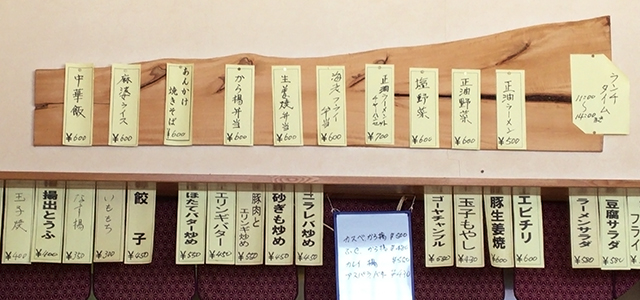 中華飯
¥600
麻婆ライス
¥600
あんかけ
焼きそば
¥600
から揚弁当
¥600
生姜焼弁当
¥600
海老フライ
弁当
¥600
正油ラーメン
¥700
塩野菜
¥600
正油野菜
¥600
正油ラーメン
¥500
ランチ
タイム
11:00
～
14:00迄
玉子焼
¥400
揚出とうふ
¥400
なす揚
¥350
いももち
¥300
餃子
¥450
ほたてバター炒め
¥550
エリンギバター
¥450
豚肉と
エリンギ炒め
¥550
砂ぎも炒め
¥450
ニラレバ炒め
¥450
ゴーヤチャンプル
玉子もやし
豚生姜焼
¥600
エビチリ
¥600
ラーメンサラダ
¥580
豆腐サラダ
フライ